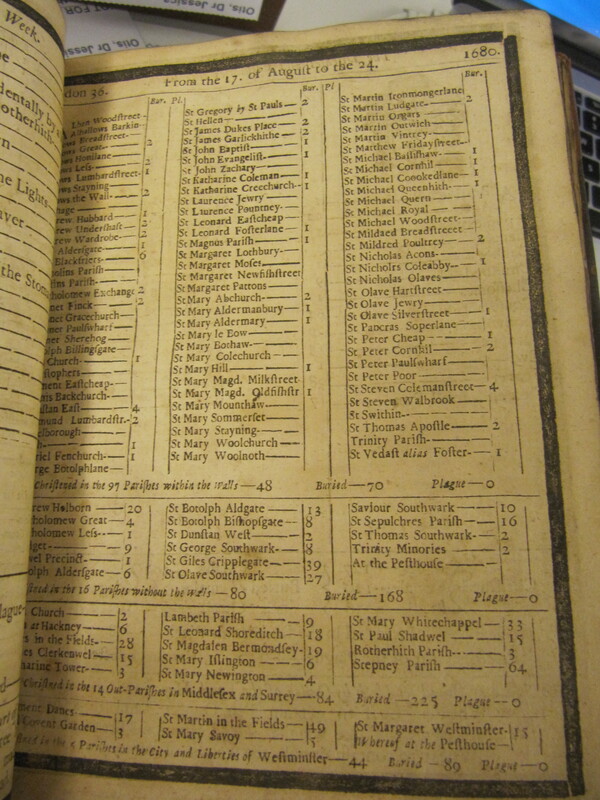 Otis, Dr Jessica
Week.
don 36. From the 17. of August to the 24. 1680.
Bur. Pl. Bur. Pl Bur.
Woodstreet—
Barkin—
Breadstreet—
Great—
Honilane—
Less— 2
Lumbardstreet— 1
Stayning—
the Wall— 2
Hubbard— 1
Undershaft— 2
Wardrobe— 2
Aldersgate— 1
Blackfriers— 6
Parish—
Parish—
holomew Exchange 2
Finck— 2
Gracechurch—
Paulswharf—
Sherehog—
olph Billingsgate—
Church— 1
stophers—
ment Eastcheap—
Backchurch—
East— 4
mund Lumbardstr.- 2
1
riel Fenchurch— 1
rge Botolphlane—
St Gregory by St Pauls — 2
St Hellen—
St James Dukes Place — 2
St James Garlickhithe — 2
St John Baptist— 1
St John Evangelist—
St John Zachary—
St Katharine Coleman— 1
St Katharine Creechurch- 1
St Laurence Jewry
St Laurence Pountney-
St Leonard Eastcheap
St Leonard Fosterlane— 1
St Magnus Parish— 1
St Margaret Lochbury-
St Margaret Moses-
St Margaret Newfishstreet
St Margaret Pattons—
St Mary Abchurch— 2
St Mary Aldermanbury— 1
St Mary Aldermary— 1
St Mary le Bow—
St Mary Bothaw—
St Mary Colechurch—
St Mary Hill— 1
St Mary Magd. Milkstreet
St Mary Magd. Oldfishstr 1
St Mary Mounthaw—
St Mary Sommerset
St Mary Stayning—
St Mary Woolchurch—
St Mary Woolnoth—
St Martin Ironmongerlane
St Martin Ludgate— 2
St Martin Orgars
St Martin Outwich—
St Martin Vintrey—
St Matthew Fridaystreet—
St Michael Bassishaw— 1
St Michael Cornhil— 1
St Michael Coookedlane— 1
St Michael Queenhith— 1
St Michael Quern—
St Michael Royal—
St Michael Woodstreet—
St Mildaed Breadstreeet
St Mildred Poultrey— 2
St Nicholas Acons—
St Nicholrs Coleabby— 1
St Nicholas Olaves—
St Olave Hartstreet—
St Olave Jewry—
St Olave Silverstreet— 1
St Pancras Soperlane—
St Peter Cheap— 1
St Peter Cornhil— 2
St Peter Paulswharf—
St Peter Poor—
St Steven Colemanstreet— 4
St Steven Walbrook—
St Swithin—
St Thomas Apostle— 2
Trinity Parish—
St Vedast alias Foster— 1
Christned in the 97 Parishes within the Walls—48 Buried—70 Plague—0
rew Holborn— 20
tholomew Great— 4
tholomew Less— 1
9
Precinct— 1
olph Aldersgate— 6
St Botolph Aldgate— 13
St Botolph Bishopsgate— 8
St Dunstan West— 2
St George Southwark- 8
St Giles Cripplegate— 39
St Olave Southwark— 27
Saviour Southwark— 10
St Sepulchres Parish— 16
St Thomas Southwark- 2
Trinity Minories— 2
At the Pesthouse—
stned in the 16 Parishes without the walls—80 Buried—168 Plague—0
Church— 2
at Hackney— 6
s in the Fields- 28
es Clerkenwel— 15
harine Tower- 3
Lambeth Parish— 9
St Leonard Shoreditch— 18
St Magdalen Bermondsey- 19
St Mary Islington— 6
St Mary Newington— 4
St Mary Whitechappel— 33
St Paul Shadwel— 15
Rotherhith Parish— 3
Stepney Parish— 64
Christned in the 14 Out-Parishes in Middlesex and Surrey—84 Buried—225 Plague—0
ment Danes— 17
Covent Garden— 3
St Martin in the Fields— 49
St Mary Savoy— 5
St Margaret Westminster- 15
Whereof at the Pesthouse—
in the 5 Parishes in the City and Liberties of Westminster—44 Buried—89 Plague—0